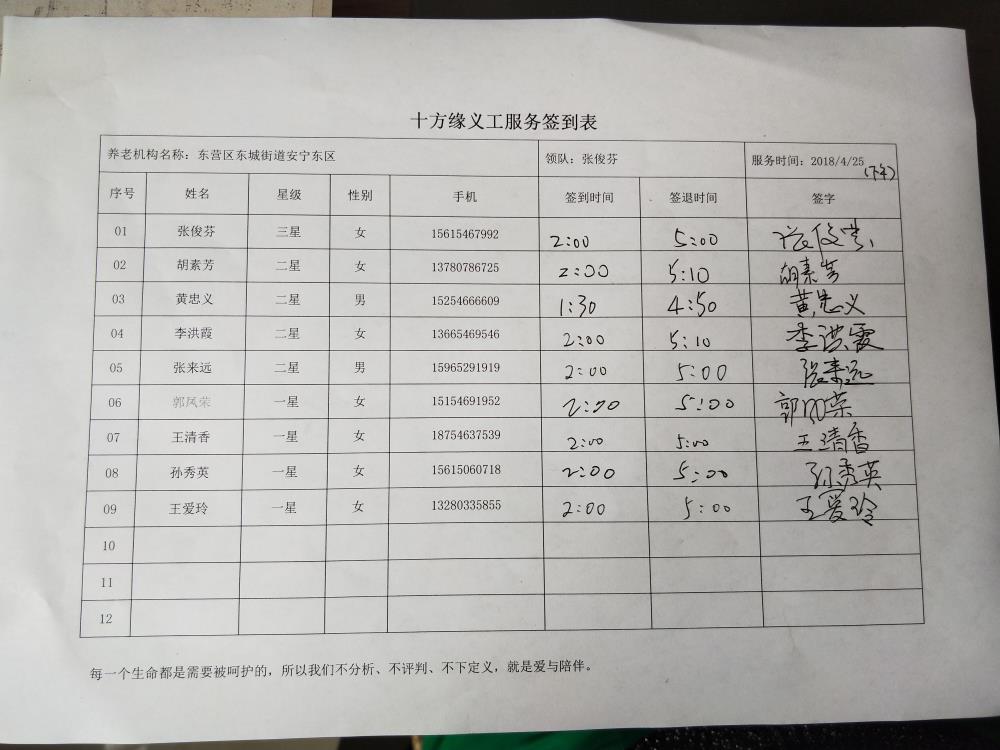 十方缘义工服务签到表
养老机构名称：东营区东城街道安宁东区 领队：张俊芬 服务时间：2018/4/25 (下午)
序号 姓名 星级 性别 手机 签到时间 签退时间 签字
01 张俊芬 三星 女 15615467992 2:00 5:00 张俊芬
02 胡素芳 二星 女 13780786725 2:00 5:10 胡素芳
03 黄忠义 二星 男 15254666609 1:30 4:50 黄忠义
04 李洪霞 二星 女 13665469546 2:00 5:10 李洪霞
05 张来远 二星 男 15965291919 2:00 5:00 张来远
06 郭凤荣 一星 女 15154691952 2:00 5:00 郭凤荣
07 王清香 一星 女 18754637539 2:00 5:00 王清香
08 孙秀英 一星 女 15615060718 2:00 5:00 孙秀英
09 王爱玲 一星 女 13280335855 2:00 5:00 王爱玲
10
11
12
每一个生命都是需要被呵护的，所以我们不分析、不评判、不下定义，就是爱与陪伴。